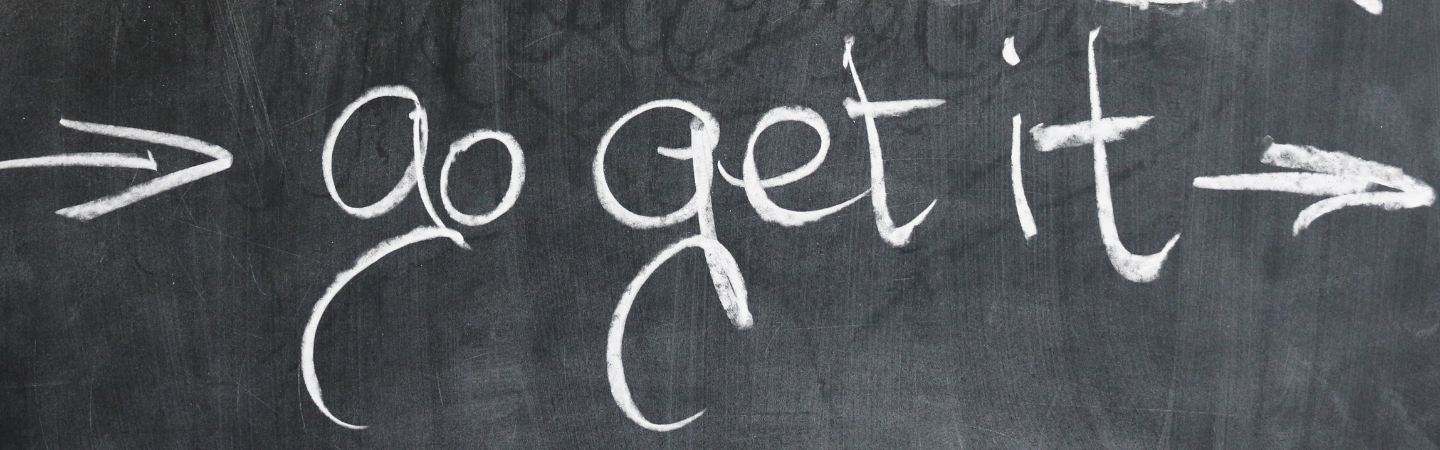 → go get it →